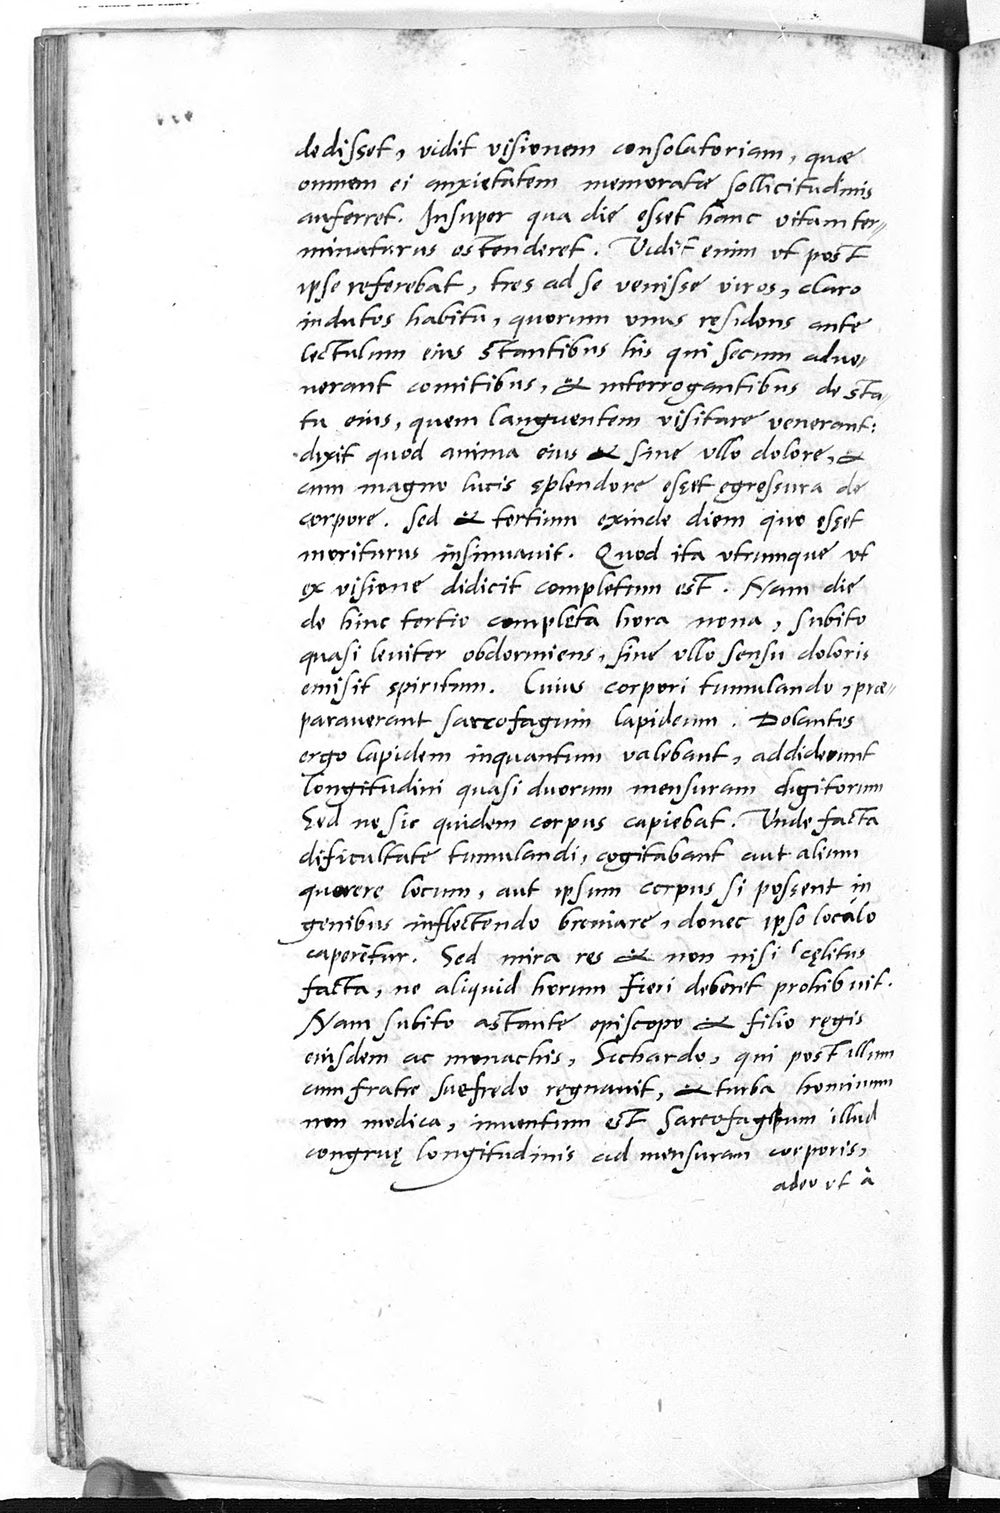 dedisset, vidit visionem consolatoriam, quæ
omnem ei anxietatem memoratæ sollicitudinis
auferret. Insuper qua die esset hanc vitam ter=
minaturus ostenderet. Vidit enim ut post
ipse referebat, tres ad se venisse viros, claro
indutos habitu, quorum unus residens ante
lectulum eius stantibus his qui secum adve=
nerant comitibus, & interrogantibus de sta=
tu eius, quem languentem visitare venerant:
dixit quod anima eius & sine ullo dolore, &
cum magno lucis splendore esset egressura de
corpore. Sed & tertium exinde diem quo esset
moriturus insinuavit. Quod ita utrumque ut
ex visione didicit completum est. Nam die
de hinc tertio completa hora nona, subito
quasi leviter obdormiens, sine ullo sensu doloris
emisit spiritum. Cuius corpori tumulando, præ=
paraverant sarcofagum lapideum. Dolantes
ergo lapidem inquantum valebant, addiderunt
longitudini quasi duorum mensuram digitorum
Sed ne sic quidem corpus capiebat. Unde facta
dificultate tumulandi, cogitabant aut alium
querere locum, aut ipsum corpus si possent in
genibus inflectendo breviare, donec ipso loculo
caperetur. Sed mira res & non nisi cęlitus
facta, ne aliquid horum fieri deberet prohibuit.
Nam subito astante episcopo & filio regis
eiusdem ac monachis, Sichardo, qui post illum
cum fratre suefredo regnavit, & turba hominum
non modica, inventum est sarcofagum illud
congruę longitudinis ad mensuram corporis,
adeo ut à